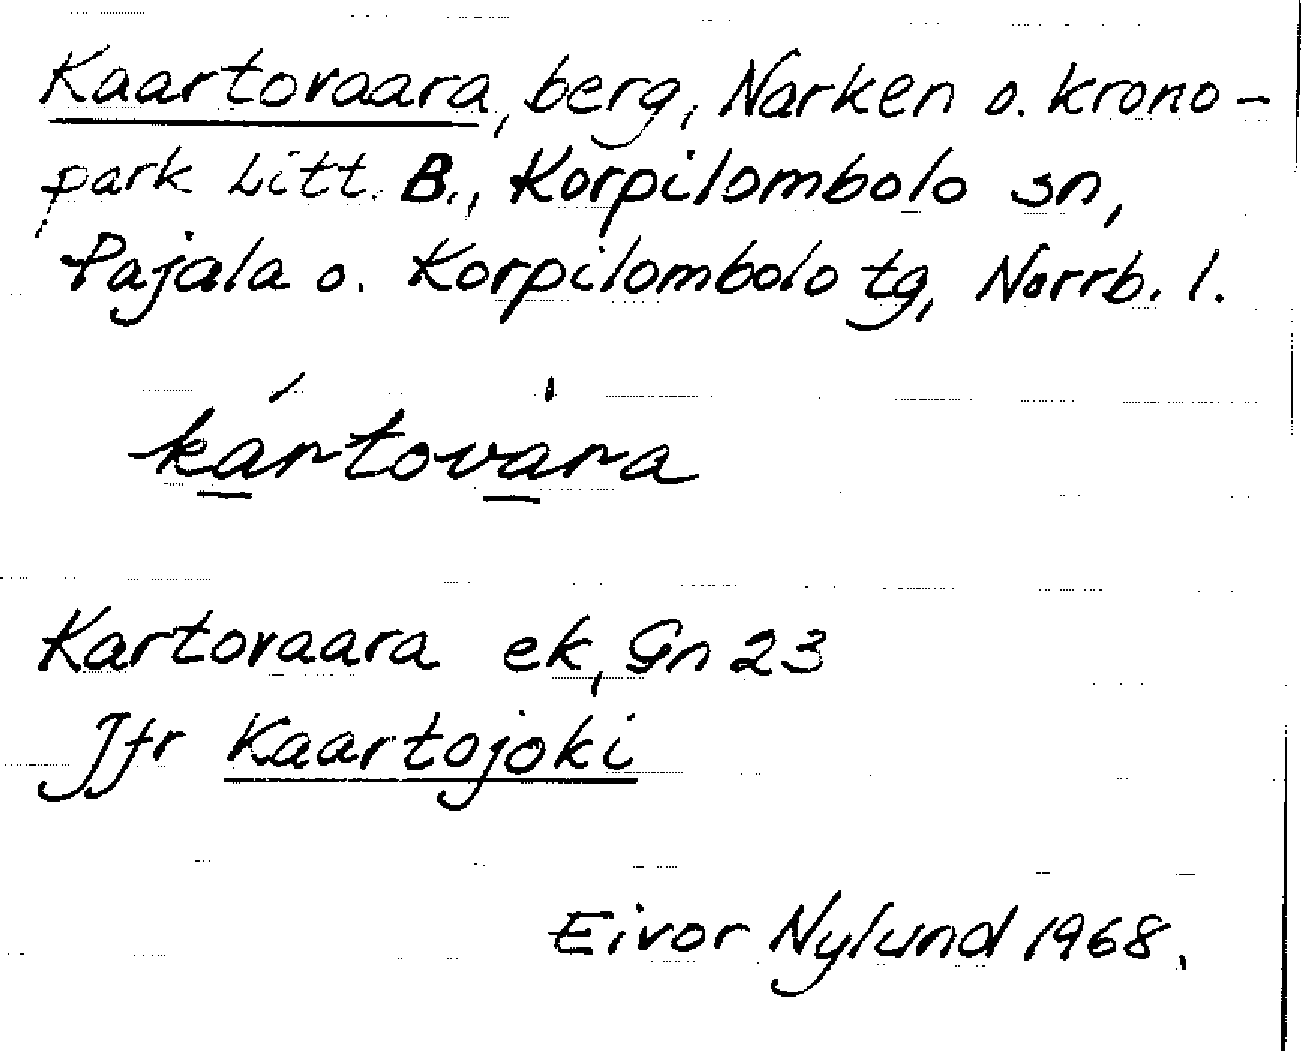 Kaartovaara, berg, Narken o. krono-
park Litt. B., Korpilombolo sn,
Pajala o. Korpilombolo tg, Norrb. l.
ká̱rtovà̱ra
Kartovaara ek, Gn 23
Jfr Kaartojoki
Eivor Nylund 1968.